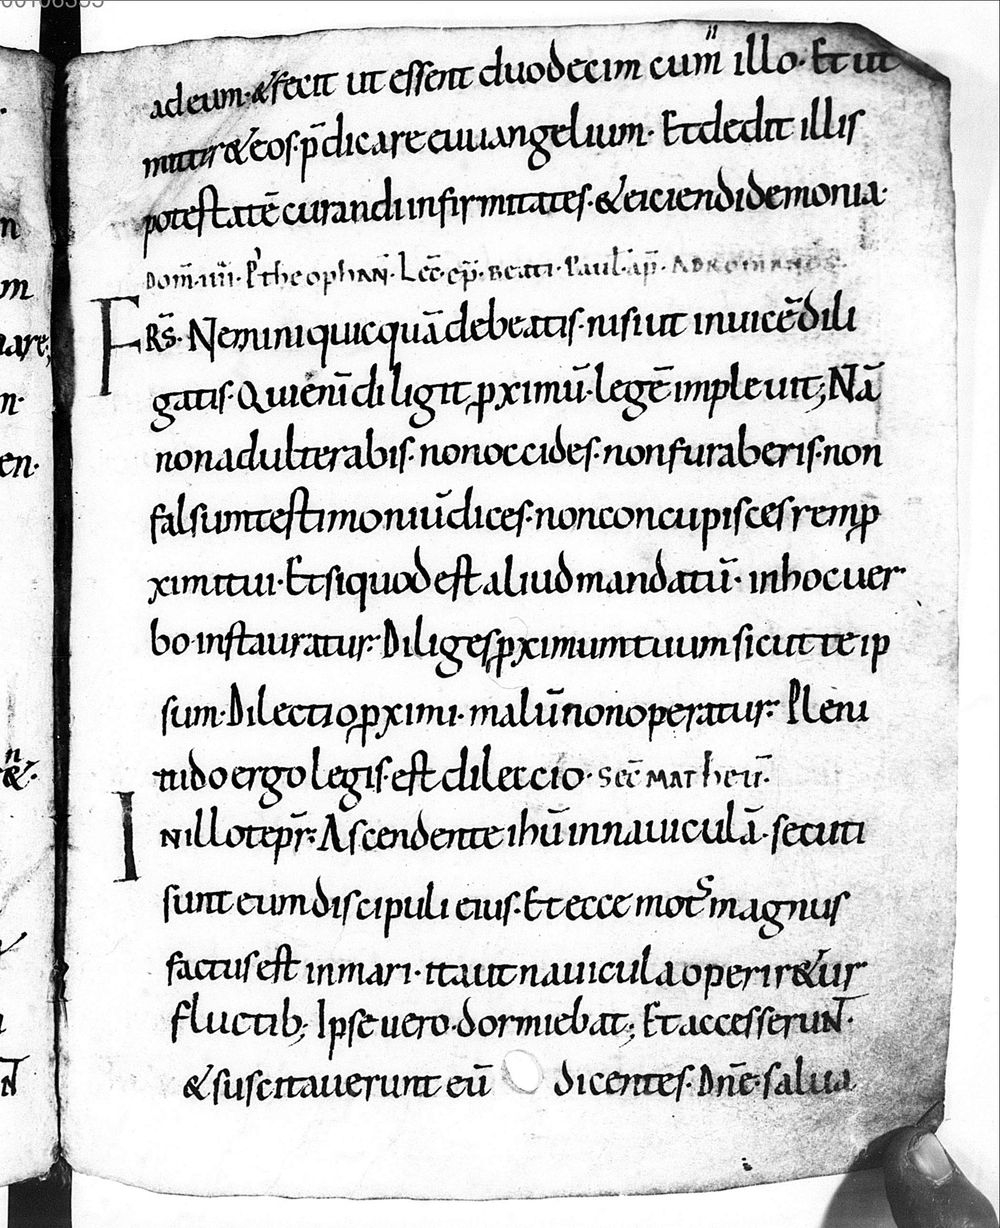 ad eum · & fecit ut essent duodecim cum illo · Et ut
mitter&eos · p̄dicare euuangelium · Et dedit illis
potestatē curandi infirmitates · & eiciendi demonia ·
Dom̄ · iiii · P' theophañ · Lec̄ · ep̄ · beati · Pauli · ap̄ · Ad romanos ·
FRS̄ · Nemini quicquā debeatis · nisi ut inuicē dili
gatis · Qui eni̅ diligit pximū · legē impleuit ; Nā
non adulterabis · non occides · non furaberis · non
falsum testimoniū dices · non concupisces rem p
ximi tui · Et siquod est aliud mandatū · in hoc uer
bo · instauratur · Diliges pximum tuum sicut te ip
sum · Dilectio pximi · malū non operatur · Pleni
tudo ergo legis · est dileccio · Sec̄ Matheū ·
IN illo tēpr̄ · Ascendente ihū in nauiculā · secuti
sunt eum discipuli eius · Et ecce mot᷒ magnus
factus est in mari · ita ut nauicula operir&ur
fluctib; Ipse uero · dormiebat ; Et accesserunt ·
& suscitauerunt eū dicentes · Dn̄e · salua